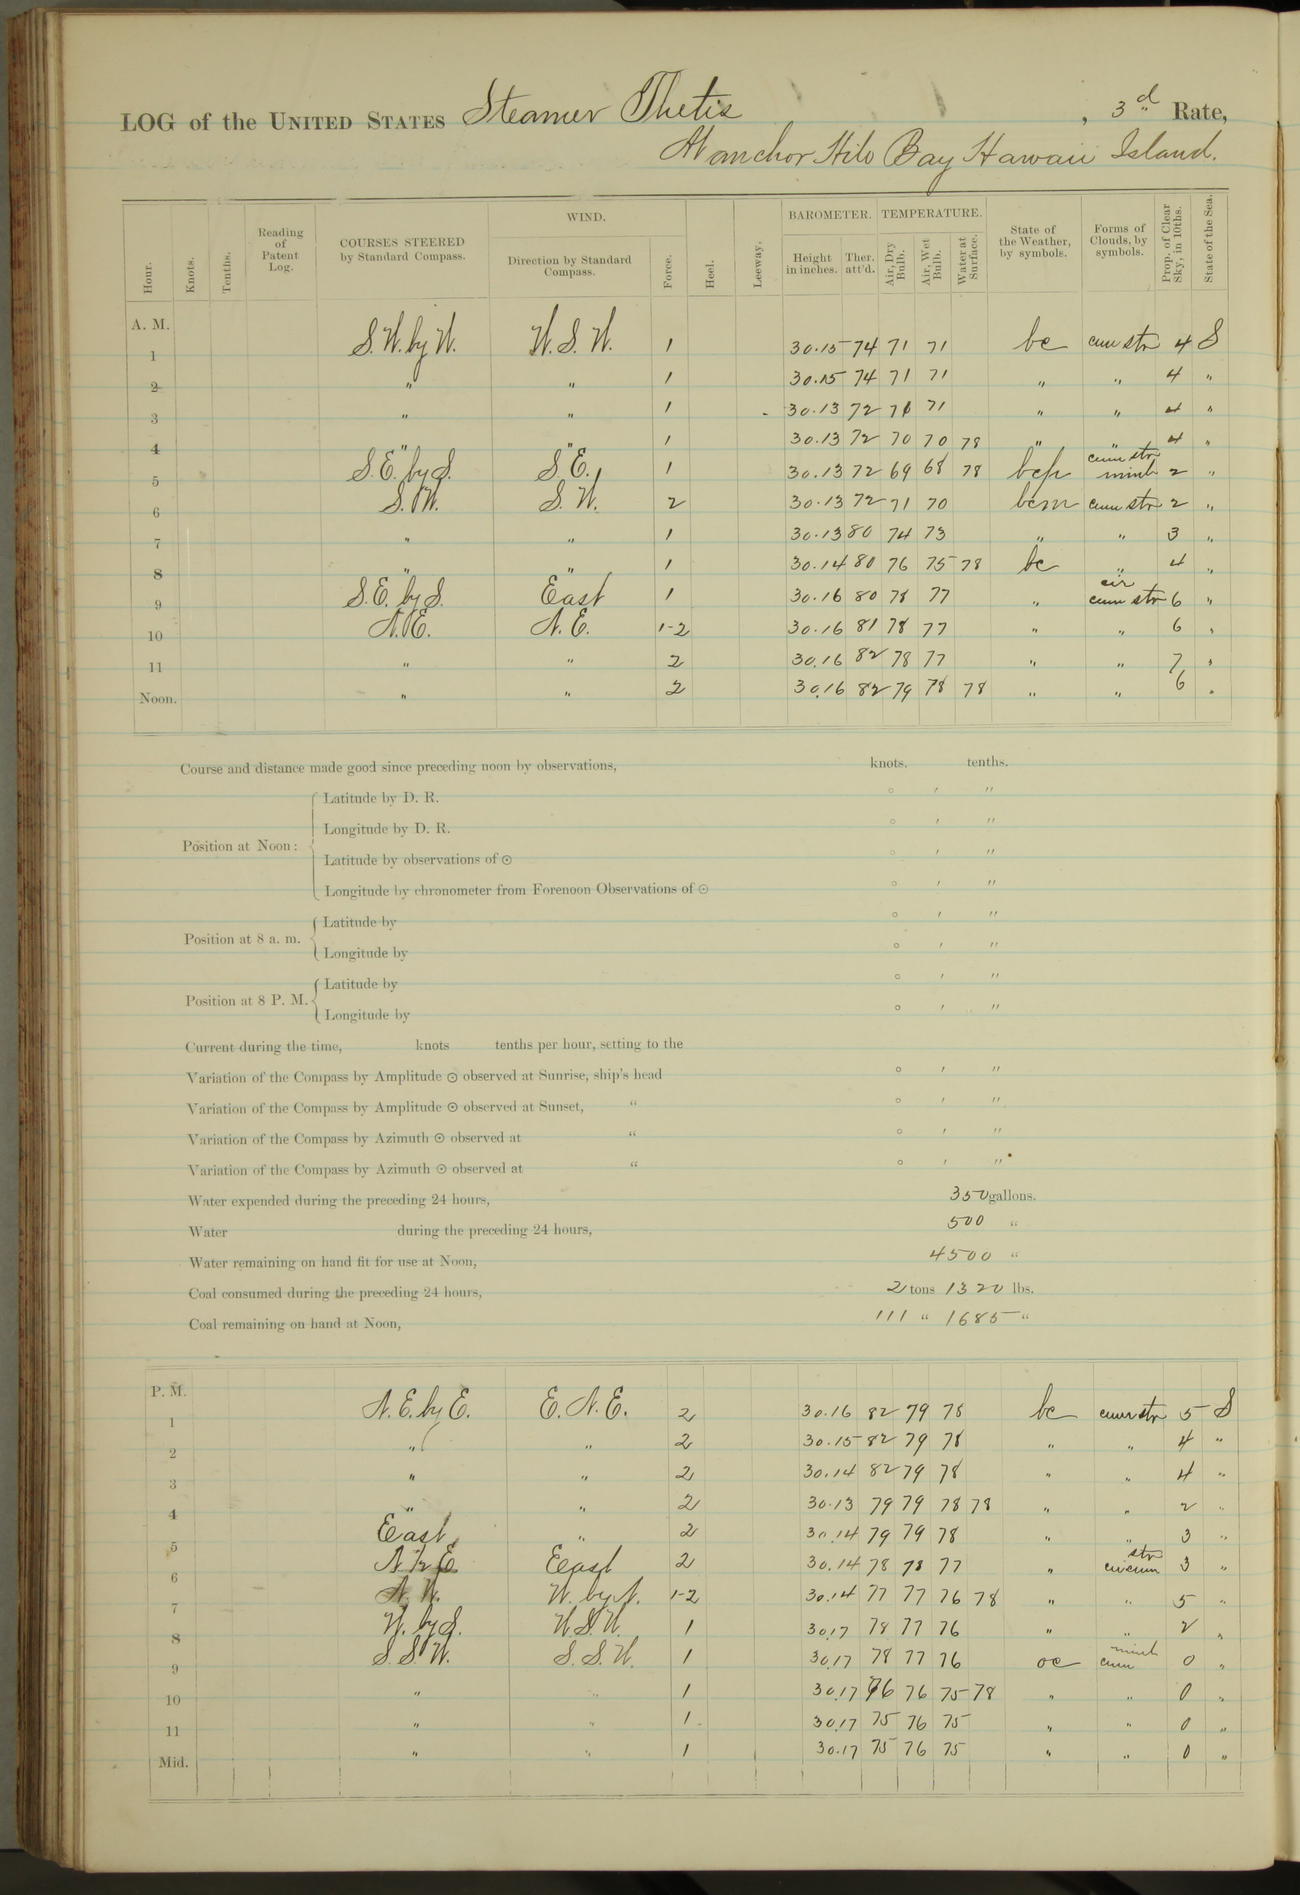 LOG of the UNITED STATES Steamer Thetis , 3d Rate,
At anchor Hilo Bay Hawaii Island.
WIND. BAROMETER. TEMPERATURE.
Hour. Knots. Tenths. Reading of Patent Log. COURSES STEERED by Standard Compass. Direction by Standard Compass. Force. Heel. Leeway. Height in inches. Ther. att'd. Air, Dry Bulb. Air, Wet Bulb. Water at Surface. State of the Weather, by symbols. Forms of Clouds, by symbols. Prop. of Clear Sky, in 10ths. State of the Sea.
A. M.
1 S.W. by W. W.S.W. 1 30.15 74 71 71 bc cum str 4 S
2 " " 1 30.15 74 71 71 " " 4 "
3 " " 1 30.13 72 71 71 " " 4 "
4 " " 1 30.13 72 70 70 78 " " 4 "
5 S.E. by S. S.E. 1 30.13 72 69 68 78 bcp cum str nimb 2 "
6 S.W. S.W. 2 30.13 72 71 70 bcm cum str 2 "
7 " " 1 30.13 80 74 73 " " 3 "
8 " " 1 30.14 80 76 75 78 bc " 4 "
9 S.E. by S. East 1 30.16 80 78 77 " cir cum str 6 "
10 N.E. N.E. 1-2 30.16 81 78 77 " " 6 "
11 " " 2 30.16 82 78 77 " " 7 "
Noon. " " 2 30.16 82 79 78 78 " " 6 "
Course and distance made good since preceding noon by observations, knots. tenths.
Position at Noon: Latitude by D. R. ° ′ ″
Longitude by D. R. ° ′ ″
Latitude by observations of ⊙ ° ′ ″
Longitude by chronometer from Forenoon Observations of ⊙ ° ′ ″
Position at 8 a. m. Latitude by ° ′ ″
Longitude by ° ′ ″
Position at 8 P. M. Latitude by ° ′ ″
Longitude by ° ′ ″
Current during the time, knots tenths per hour, setting to the
Variation of the Compass by Amplitude ⊙ observed at Sunrise, ship's head ° ′ ″
Variation of the Compass by Amplitude ⊙ observed at Sunset, " ° ′ ″
Variation of the Compass by Azimuth ⊙ observed at " ° ′ ″
Variation of the Compass by Azimuth ⊙ observed at " ° ′ ″
Water expended during the preceding 24 hours, 350 gallons.
Water during the preceding 24 hours, 500 "
Water remaining on hand fit for use at Noon, 4500 "
Coal consumed during the preceding 24 hours, 2 tons 1320 lbs.
Coal remaining on hand at Noon, 111 " 1685 "
P. M.
1 N.E. by E. E.N.E. 2 30.16 82 79 78 bc cum str 5 S
2 " " 2 30.15 82 79 78 " " 4 "
3 " " 2 30.14 82 79 78 " " 4 "
4 " " 2 30.13 79 79 78 78 " " 2 "
5 East " 2 30.14 79 79 78 " " 3 "
6 East 2 30.14 78 78 77 " str cir cum 3 "
7 N.W. W. by N. 1-2 30.14 77 77 76 78 " " 5 "
8 W. by S. W.S.W. 1 30.17 78 77 76 " " 2 "
9 S.S.W. S.S.W. 1 30.17 78 77 76 oc nimb cum 0 "
10 " " 1 30.17 76 76 75 78 " " 0 "
11 " " 1 30.17 75 76 75 " " 0 "
Mid. " " 1 30.17 75 76 75 " " 0 "